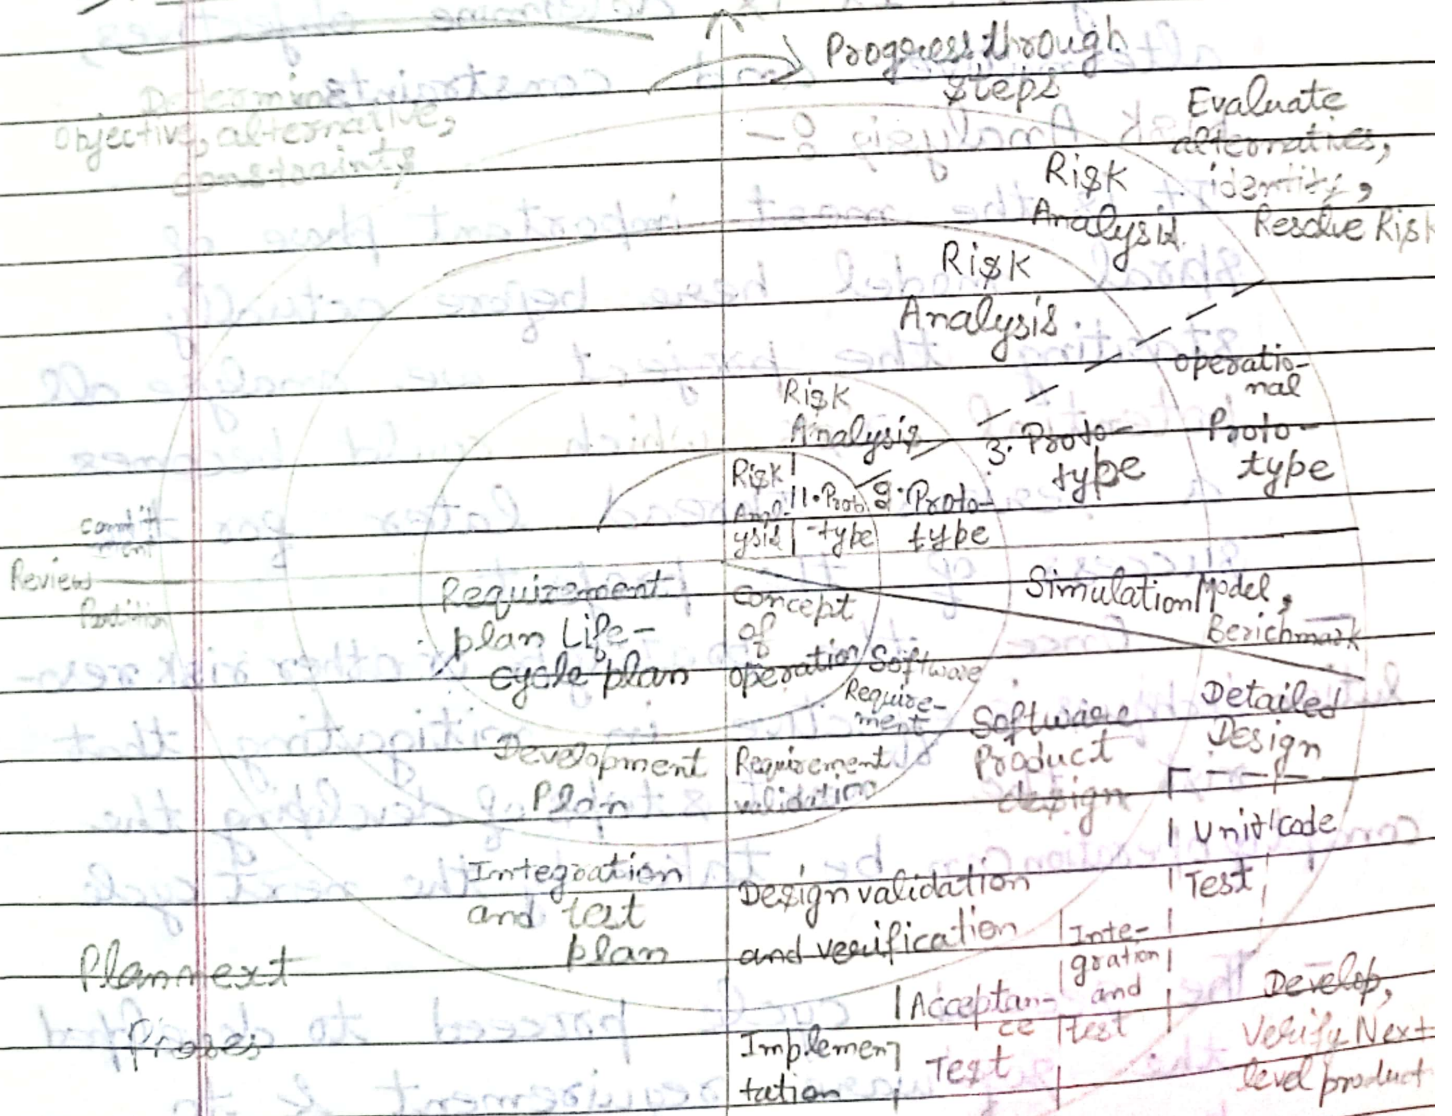 Progress through
steps
Determins
Objective, alternative,
constraints
Evaluate
alternatives,
identity,
Resolve Risk
Risk
Analysis
Risk
Analysis
Risk
Analysis
Risk
Anal-
ysis
1. Proto
-type
2. Proto-
type
3. Proto-
type
operatio-
nal
Proto-
type
commit
ment
Review
Partition
Requirement
plan Life-
cycle plan
Concept
of
operation
Software
Require-
ment
Simulation Model,
Berichmark
Software
Product
design
Detailed
Design
Development
Plan
Requirement
validation
Unit/code
Test
Integration
and test
plan
Design validation
and verification
Inte-
gration
and
test
Acceptan-
ce
Test
Implemen
tation
Plan next
Develop,
Verify Next
level product